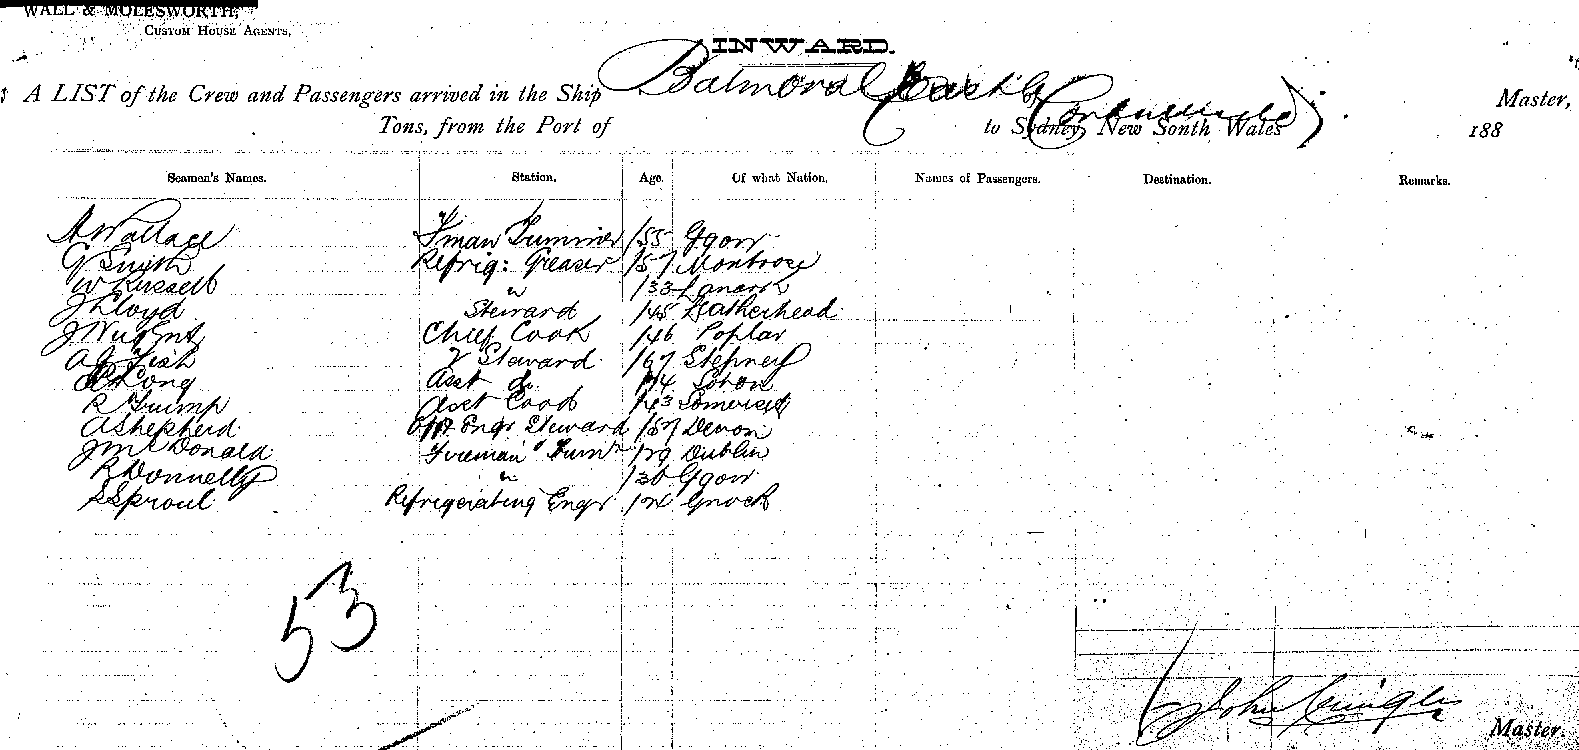 WALL & MOLESWORTH,
CUSTOM HOUSE AGENTS,
INWARD.
A LIST of the Crew and Passengers arrived in the Ship Balmoral Castle (Continued) Master,
Tons, from the Port of to Sydney, New South Wales 188
Seamen's Names. Station. Age. Of what Nation. Names of Passengers. Destination. Remarks.
A Wallace Fman Trimmer 55 Ggow
G Smith Refrig: Greaser 57 Montrose
W Russell " 33 Lanark
J Lloyd Steward 45 Leatherhead
J Nugent Chief Cook 46 Poplar
A G Fish 2 Steward 67 Stepney
Long Asst do. Soton
R Trump Asst Cook 43 Somerset
A Shepherd Engr Steward 57 Devon
J McDonald Fireman & Trimr 29 Dublin
R Donnelly " 36 Ggow
S Sproul Refrigerating Engr Gnock
53
John
Master.